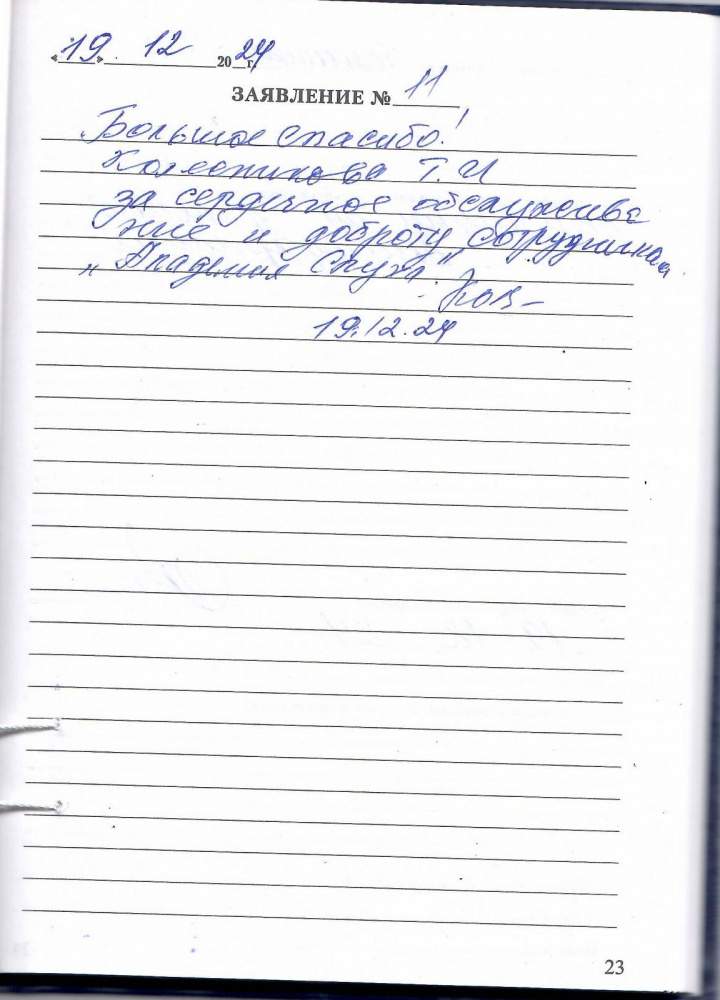 «19» 12 2024 г.
ЗАЯВЛЕНИЕ № 11
Большое спасибо!
Колесникова Т.И
за сердечное обслужива
ние и доброту сотрудникам
„Академия Слуха"
19.12.24
23